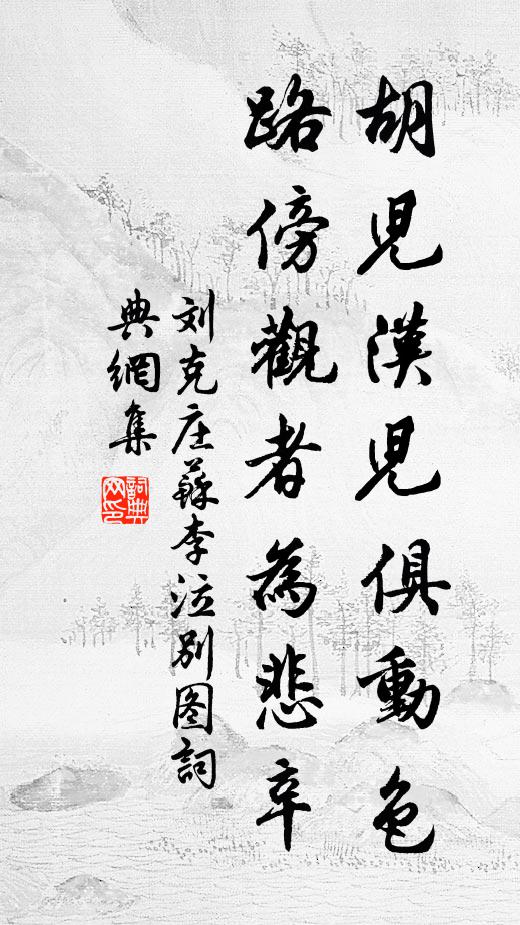 胡児漢児俱動色
路傍觀者為悲辛
刘克庄蘇李泣別图詞
典網集
詞典网印